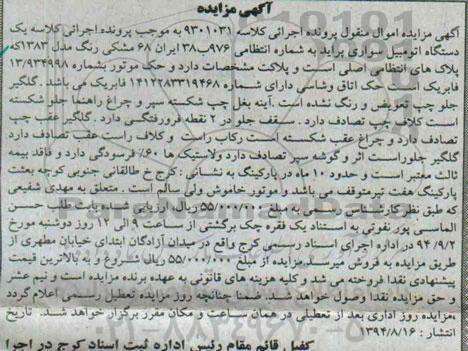 آگهی مزایده
آگهی مزایده اموال منقول پرونده اجرائی کلاسه ۹۳۰۱۰۳۱ به موجب پرونده اجرائی کلاسه یک
دستگاه اتومبیل سواری پراید به شماره انتظامی ۹۷۶ب۳۸ ایران ۶۸ مشکی رنگ مدل ۱۳۸۳که
پلاک های انتظامی اصلی است و پلاکت مشخصات دارد و حک موتور بشماره ۱۳/۹۳۴۹۹۸
فابریک است . حک اتاق وشاسی دارای شماره ۱۴۱۲۲۸۳۳۱۹۴۶۸ فابریک می باشد. گلگیر
جلو چپ تعویض و رنگ نشده است. آینه بغل چپ شکسته سپر و چراغ راهنما جلو شکسته
است کلاف چپ تصادف دارد . سقف جلو در ۲ نقطه فرورفتگی دارد . گلگیر عقب چپ
تصادف دارد و چراغ عقب شکسته است رکاب راست و کلاف راست عقب تصادف دارد
گلگیر جلوراست اثر و گوشه سپر تصادف دارد ولاستیک ها ۶۰٪ فرسودگی دارد و فاقد بیمه
ثالث معتبر است و حدود ۱۰ ماه در پارکینگ به نشانی : کرج خ طالقانی جنوبی کوچه بعثت
پارکینگ هفت تیرمتوقف می باشد و موتور خاموش ولی سالم است . متعلق به مهدی شفیعی
که طبق نظر کارشناس رسمی به مبلغ ۵۵/۰۰۰/۰۰۰ ریال ارزیابی شده بابت طلب حسن
الماسی پور نقوتی به استناد یک فقره چک برگشتی از ساعت ۹ الی ۱۲ روز دوشنبه مورخ
۹۴/۹/۲ در اداره اجرای اسناد رسمی کرج واقع در میدان آزادگان ابتدای خیابان مطهری از
طریق مزایده به فروش میرسد.مزایده از مبلغ ۵۵/۰۰۰/۰۰۰ ریال شروع و به بالاترین قیمت
پیشنهادی نقدا فروخته می شود. کلیه هزینه های قانونی به عهده برنده مزایده است و نیم عشر
و حق مزایده نقدا وصول خواهد شد. ضمنا چنانچه روز مزایده تعطیل رسمی اعلام گردد
،مزایده روز اداری بعد از تعطیلی در همان ساعت و مکان مقرر برگزار خواهد شد. تاریخ
انتشار : ۱۳۹۴/۸/۱۶
کفیل قائم مقام رئیس اداره ثبت اسناد کرج در اجرا